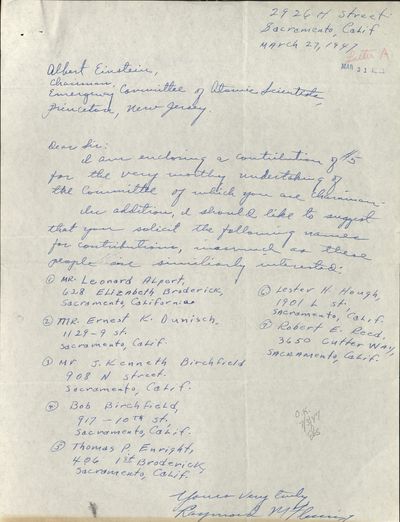 2926 H Street
Sacramento, Calif
March 27, 1947
Letter A
MAR 31
Albert Einstein,
Chairman,
Emergency Committee of Atomic Scientists,
Princeton, New Jersey
Dear Sir:
I am enclosing a contribution of $5
for the very worthy undertaking of
the Committee of which you are chairman.
In addition, I should like to suggest
that your solicit the following names
for contributions, inasmuch as these
people are similiarly interested:
① MR. Leonard Alpert,
628 Elizabeth Broderick,
Sacramento, California
② MR. Ernest K. Dunisch,
1129-9 st.
Sacramento, Calif.
③ Mr J. Kenneth Birchfield
908 N street.
Sacramento, Calif.
④ Bob Birchfield,
917 - 10th st.
Sacramento, Calif.
⑤ Thomas P. Enright,
406 1st Broderick,
Sacramento, Calif.
⑥ Lester H. Hough,
1901 L st.
Sacramento, Calif.
⑦ Robert E. Reed,
3650 Cutter Way,
Sacramento, Calif.
O.K.
Yours Very Truly
Raymond